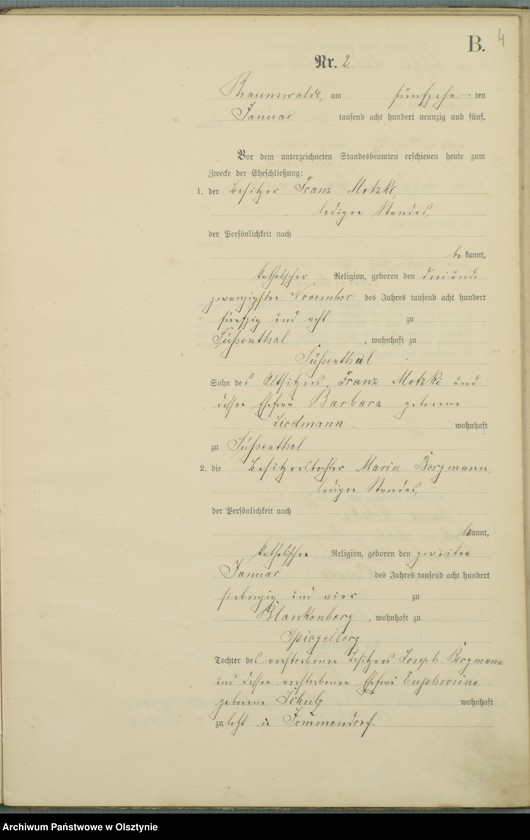 B. 4
Nr. 2
Braunswalde, am fünfzehn ten
Januar tausend acht hundert neunzig und fünf.
Vor dem unterzeichneten Standesbeamten erschienen heute zum
Zwecke der Eheschließung:
1. der Besitzer Franz Motzki,
ledigen Standes,
der Persönlichkeit nach
be kannt,
katholischer Religion, geboren den drei und
zwanzigsten November des Jahres tausend acht hundert
fünfzig und acht zu
Süßenthal, wohnhaft zu
Süßenthal
Sohn des Altsitzers Franz Motzki und
dessen Ehefrau Barbara geborene
Liedmann wohnhaft
zu Süßenthal
2. die Besitzerstochter Maria Bergmann,
ledigen Standes,
der Persönlichkeit nach
bekannt,
katholischer Religion, geboren den zweiten
Januar des Jahres tausend acht hundert
siebenzig und vier zu
Blankenberg, wohnhaft zu
Spiegelberg
Tochter des verstorbenen Besitzers Joseph Bergmann
und dessen verstorbenen Ehefrau Euphrosine
geborene Schulz wohnhaft
zuletzt in Tommendorf.
Archiwum Państwowe w Olsztynie